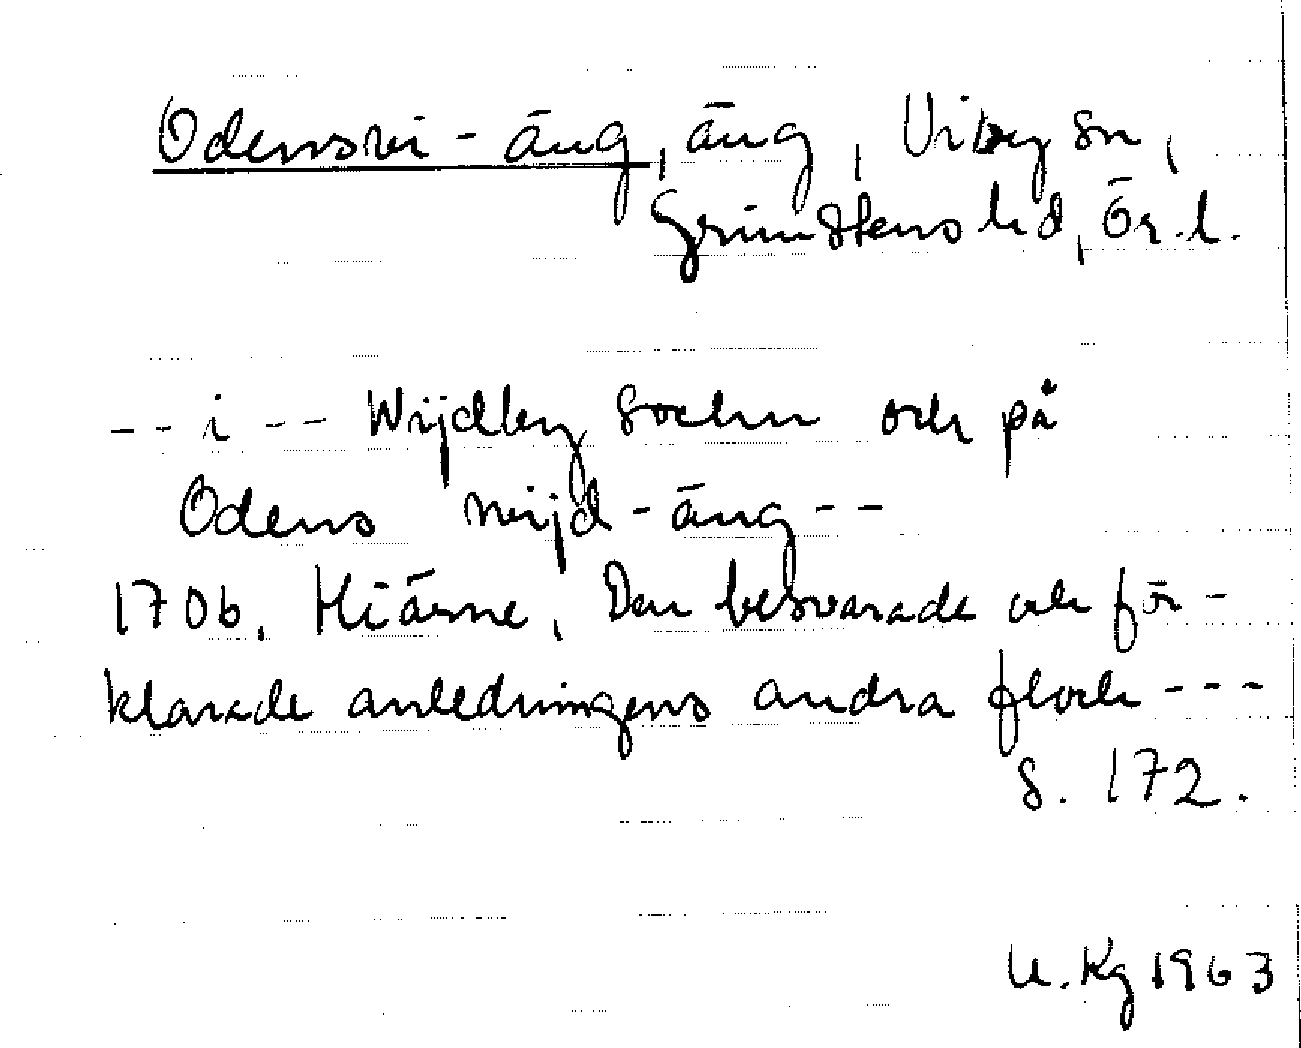 Odensvi-äng, äng, Viby sn,
Grimstens hd, Ör.l.
-- i -- Wijdby Sochn och på
Odens wijd-äng --
1706. Hiärne, Den besvarade och för-
klarade anledningens andra flock ---
s. 172.
U. Kg 1963